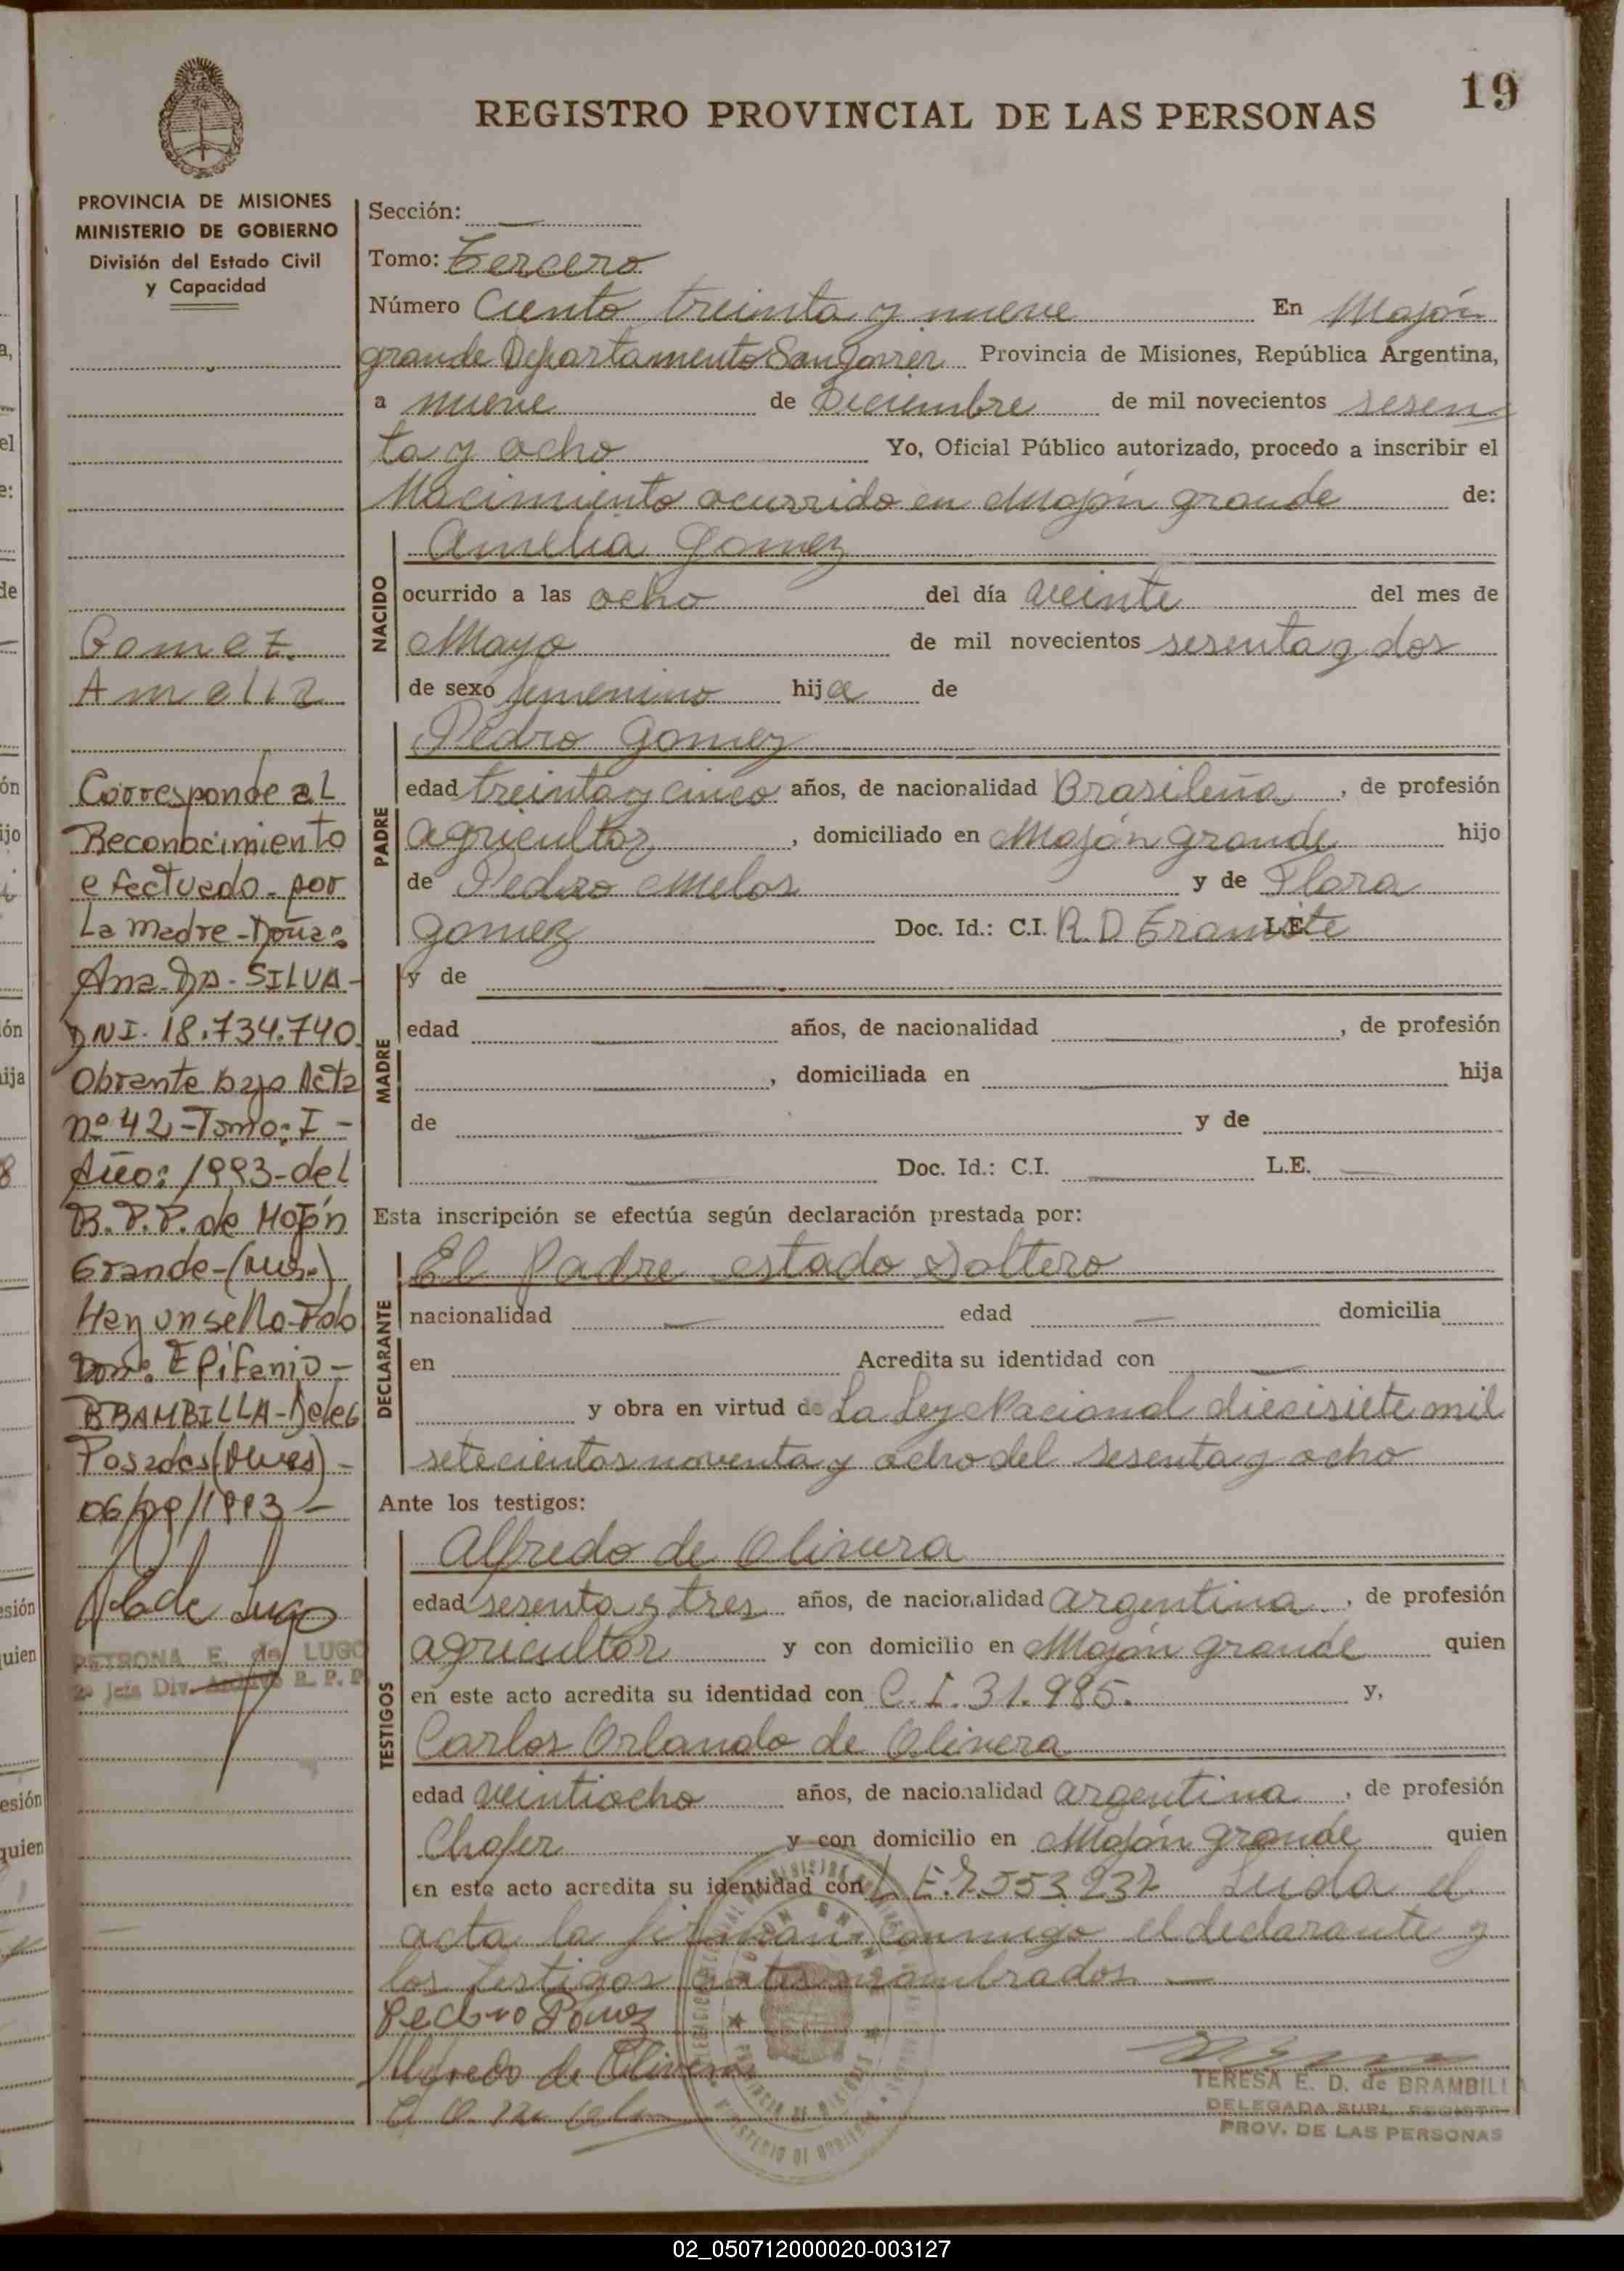 19
REGISTRO PROVINCIAL DE LAS PERSONAS
PROVINCIA DE MISIONES
MINISTERIO DE GOBIERNO
División del Estado Civil
y Capacidad
Gomez.
Amelia
Corresponde al
Reconocimiento
efectuado - por
La madre - Doña:
Ana - DA - SILVA -
DNI. 18.734.740.
Obrante bajo Acta
nº 42 - Tomo: I -
Año: 1993 - del
R. P. P. de Mojón
Grande -
Hay un sello - Fdo
Don: Epifanio -
BRAMBILLA - Deleg
Posadas
06/09/1993 -
PETRONA E. de LUGO
2º Jefa Div. Archivo R. P. P.
Sección: —
Tomo: Tercero
Número Ciento treinta y nueve En Mojón
grande Departamento San Javier Provincia de Misiones, República Argentina,
a nueve de Diciembre de mil novecientos sesen
ta y ocho Yo, Oficial Público autorizado, procedo a inscribir el
Nacimiento ocurrido en Mojón grande de:
NACIDO
Amelia Gomez
ocurrido a las ocho del día veinte del mes de
Mayo de mil novecientos sesenta y dos
de sexo femenino hija de
PADRE
Pedro Gomez
edad treinta y cinco años, de nacionalidad Brasileña, de profesión
agricultor, domiciliado en Mojón grande hijo
de Pedro Melos y de Flora
Gomez Doc. Id.: C.I. R.D Tramite L.E.
MADRE
y de —
edad — años, de nacionalidad —, de profesión
—, domiciliada en — hija
de — y de
— Doc. Id.: C.I. — L.E. —
Esta inscripción se efectúa según declaración prestada por:
DECLARANTE
El Padre estado Soltero
nacionalidad — edad — domicilia
en Acredita su identidad con —
y obra en virtud de La Ley Nacional diecisiete mil
setecientos noventa y ocho del sesenta y ocho
Ante los testigos:
TESTIGOS
Alfredo de Olivera
edad sesenta y tres años, de nacionalidad argentina, de profesión
agricultor y con domicilio en Mojón grande quien
en este acto acredita su identidad con C.I. 31.985. y,
Carlos Orlando de Olivera
edad veintiocho años, de nacionalidad argentina, de profesión
Chofer y con domicilio en Mojón grande quien
en este acto acredita su identidad con L.E.7.553.237 Leida el
acta la firman conmigo el declarante y
los testigos antes nombrados. —
Pedro Gomez
Alfredo de Olivera
TERESA E. D. de BRAMBILLA
DELEGADA SUPL. REGISTRO
PROV. DE LAS PERSONAS
02_050712000020-003127